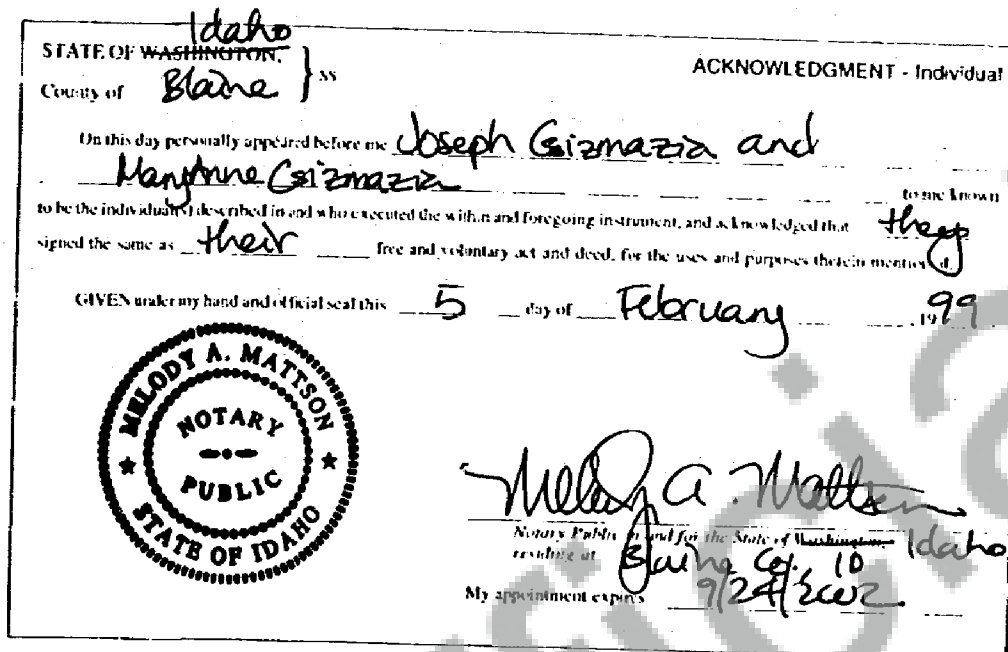 Idaho
STATE OF WASHINGTON,
County of Blaine } ss
ACKNOWLEDGMENT - Individual
On this day personally appeared before me Joseph Csizmazia and
MaryAnne Csizmazia to me known
to be the individual(s) described in and who executed the within and foregoing instrument, and acknowledged that they
signed the same as their free and voluntary act and deed, for the uses and purposes therein mentioned.
GIVEN under my hand and official seal this 5 day of February 1999
MELODY A. MATTSON
NOTARY
PUBLIC
STATE OF IDAHO
Melody A. Mattson
Notary Public in and for the State of Washington, Idaho
residing at Blaine Co. ID
My appointment expires 9/24/2002